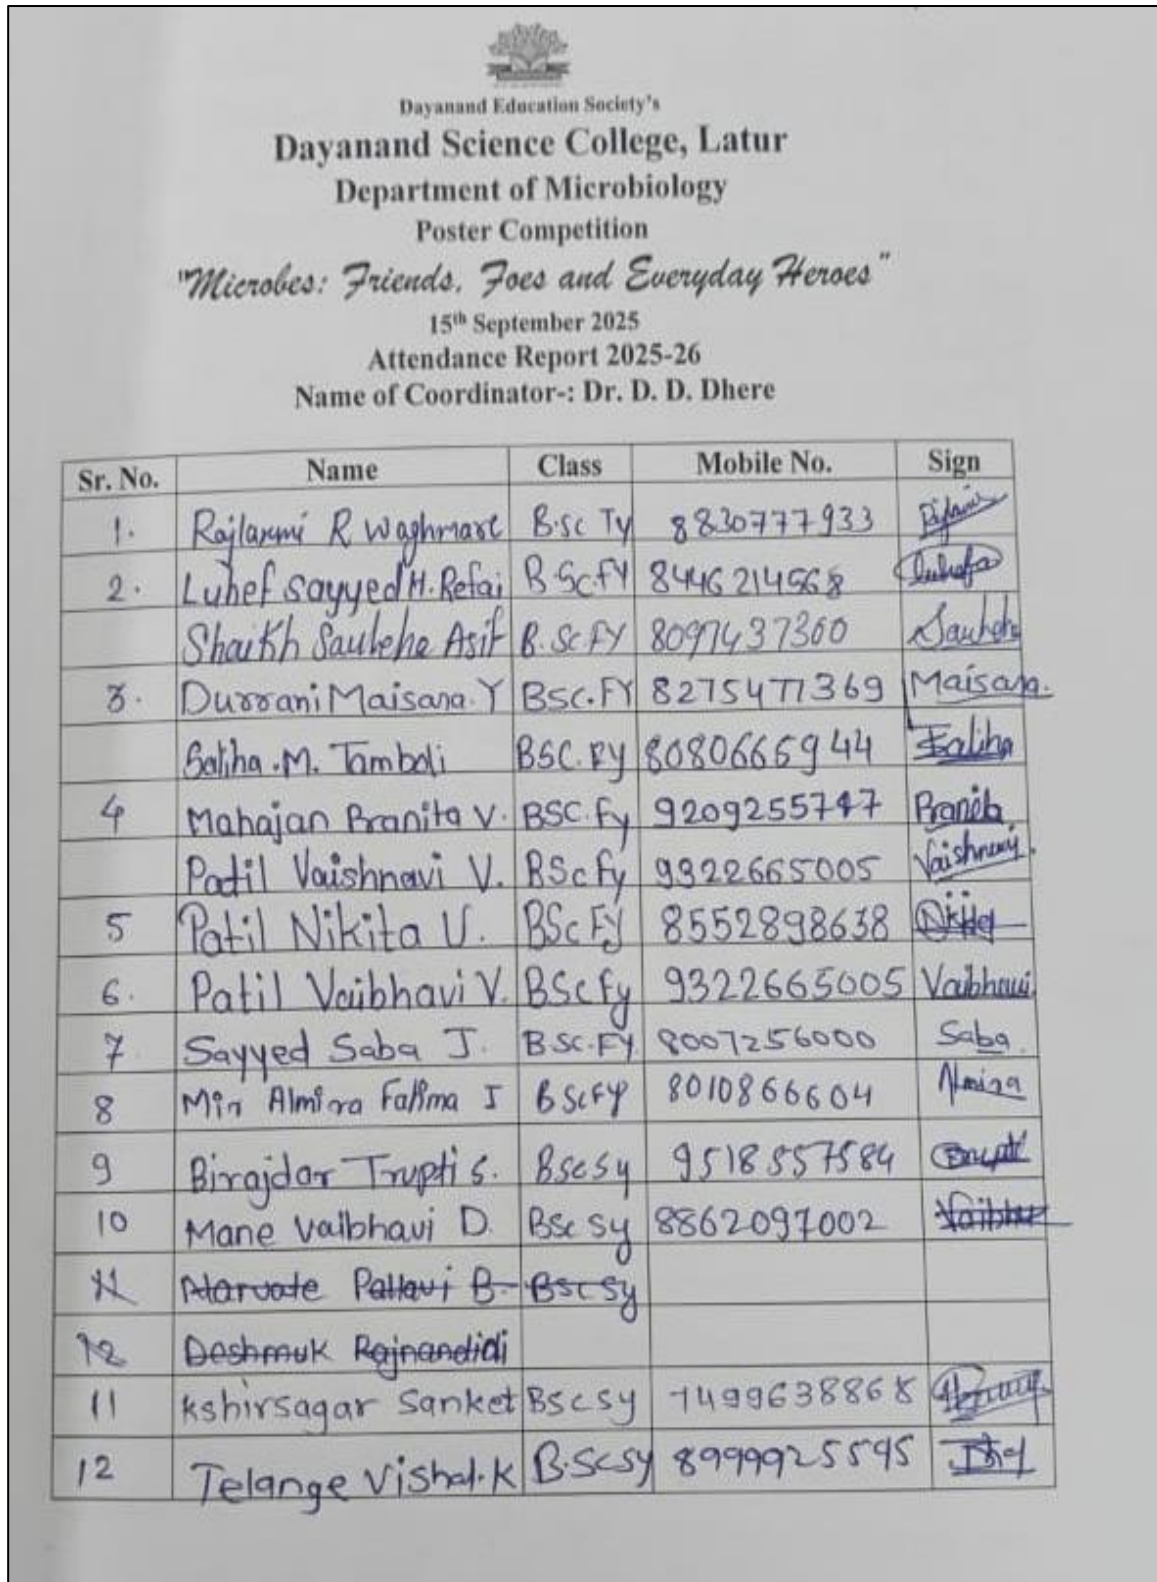 Dayanand Education Society's
Dayanand Science College, Latur
Department of Microbiology
Poster Competition
"Microbes: Friends, Foes and Everyday Heroes"
15th September 2025
Attendance Report 2025-26
Name of Coordinator-: Dr. D. D. Dhere
Sr. No. Name Class Mobile No. Sign
1. Rajlaxmi R Waghmare B.sc Ty 8830777933
2. Luhef Sayyed H. Refai B.Sc.FY 8446214568
Shaikh Saulehe Asif B.Sc FY 8097437300 Saulehe
3. Durrani Maisara. Y BSC.FY 8275477369 Maisara.
Saliha .M. Tamboli BSC.FY 8080665944 Saliha
4 Mahajan Pranita V. BSC.Fy 9209255747 Pranita
Patil Vaishnavi V. BSc Fy 9322665005 Vaishnavi.
5 Patil Nikita U. BSc FY 8552898638 Nikita
6. Patil Vaibhavi V. BSc Fy 9322665005 Vaibhavi
7 Sayyed Saba J. BSC.FY 8007256000 Saba.
8 Mir Almira Fatima I BScFY 8010866604 Almira
9 Birajdar Trupti S. BscSy 9518557584
10 Mane Vaibhavi D. Bsc Sy 8862097002
11 Narvate Pallavi B. BscSy
12 Deshmuk Rajnandidi
11 Kshirsagar Sanket BscSy 7499638868
12 Telange Vishal.K B.ScSy 8999925595